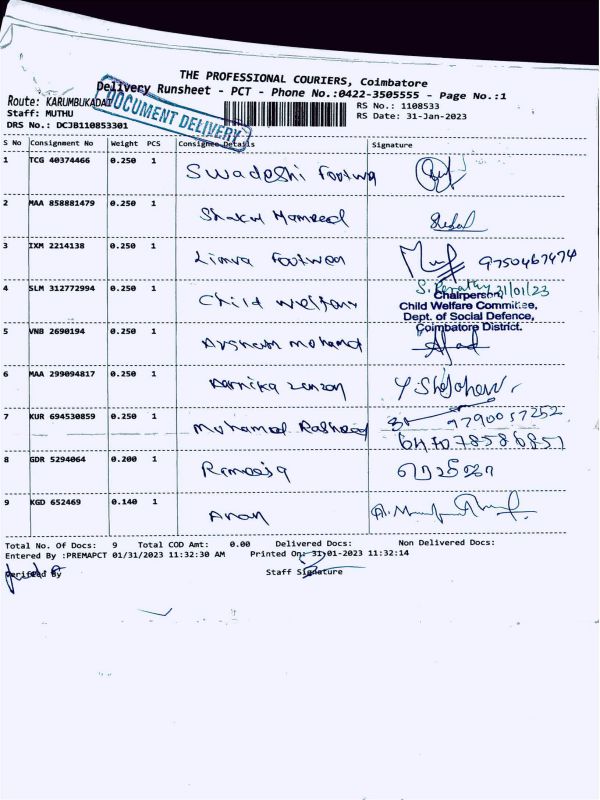 THE PROFESSIONAL COURIERS, Coimbatore
Delivery Runsheet - PCT - Phone No.:0422-3505555 - Page No.:1
Route: KARUMBUKADAI
Staff: MUTHU
DRS No.: DCJB110853301
DOCUMENT DELIVERY
RS No.: 1108533
RS Date: 31-Jan-2023
S No Consignment No Weight PCS Consignee Details Signature
1 TCG 40374466 0.250 1 Swadeshi Footwa
2 MAA 858881479 0.250 1 Shakul Hameed
3 IXM 2214138 0.250 1 Limra Footwear 9750467474
4 SLM 312772994 0.250 1 Child welfare 31/01/23
Chairperson,
Child Welfare Committee,
Dept. of Social Defence,
Coimbatore District.
5 VNB 2690194 0.250 1 mohamed
6 MAA 299094817 0.250 1
7 KUR 694530859 0.250 1 Muhamed Rasheed 9790057252
8 GDR 5294064 0.200 1
9 KGD 652469 0.140 1
Total No. Of Docs: 9 Total COD Amt: 0.00 Delivered Docs: Non Delivered Docs:
Entered By :PREMAPCT 01/31/2023 11:32:30 AM Printed On: 31-01-2023 11:32:14
Verified By Staff Signature